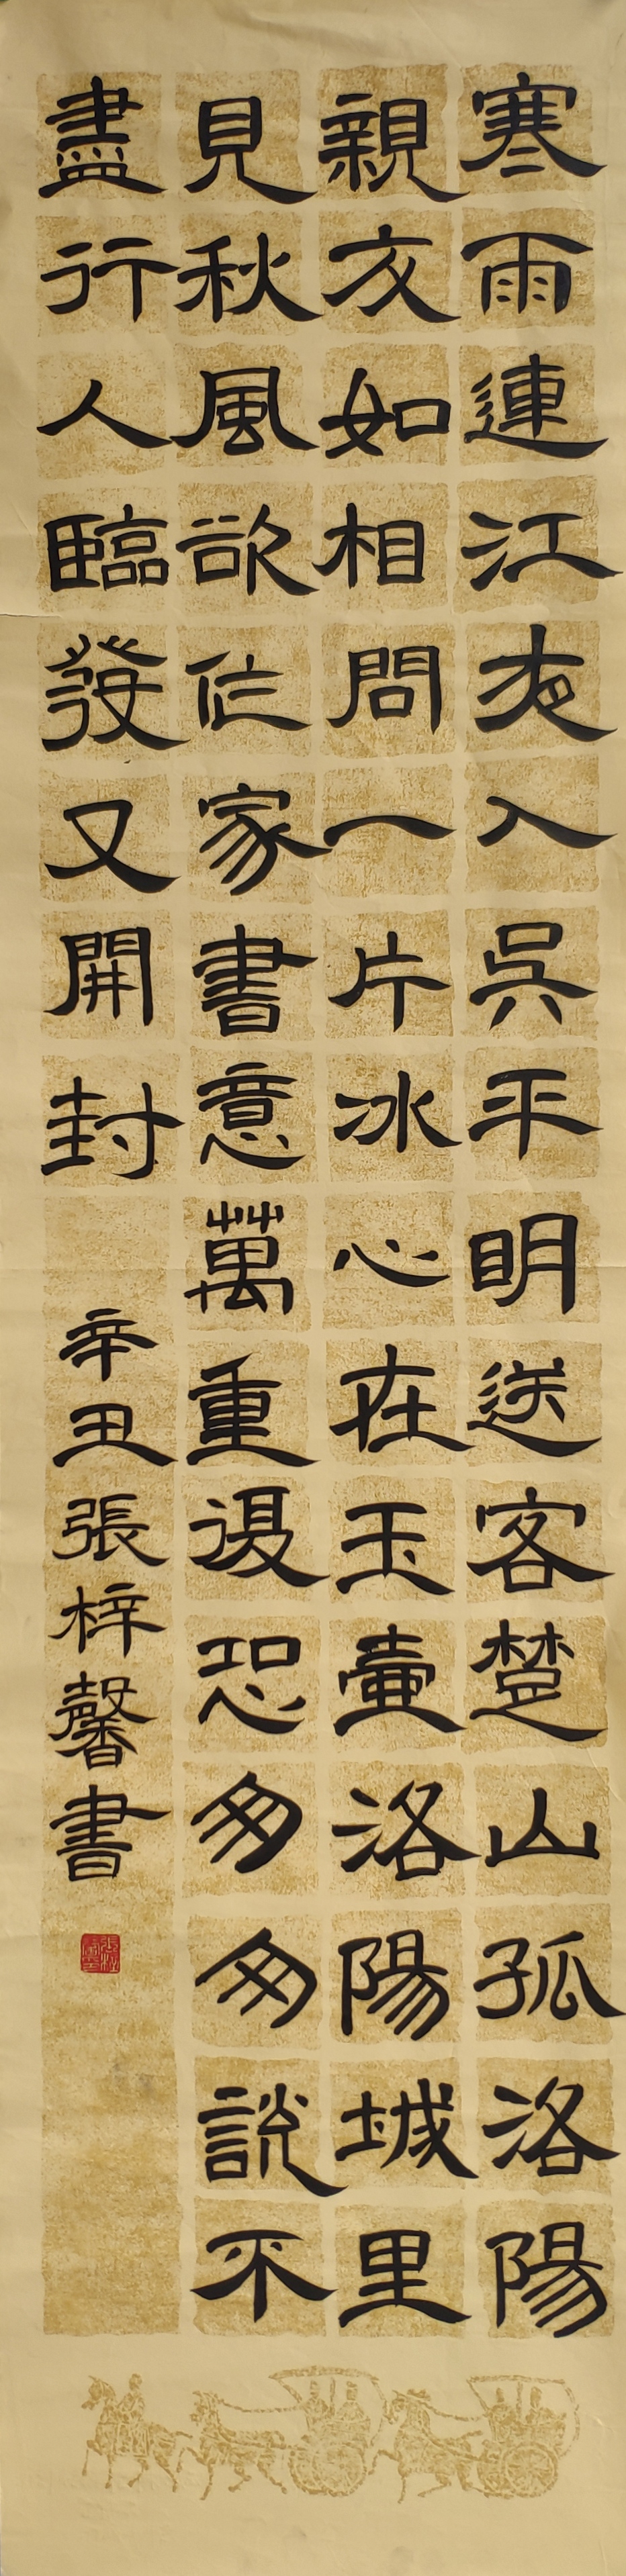 寒雨連江夜入吳平明送客楚山孤洛陽
親友如相問一片冰心在玉壺洛陽城里
見秋風欲作家書意萬重復恐匆匆說不
盡行人臨發又開封
辛丑張梓馨書